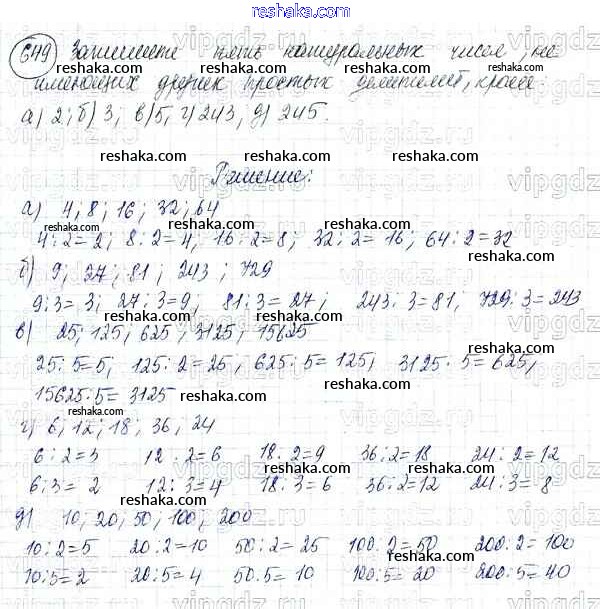 reshaka.com
649 Запишите пять натуральных чисел, не
имеющих других простых делителей, кроме:
а) 2; б) 3; в) 5; г) 243; д) 245.
Решение:
а) 4; 8; 16; 32; 64
4:2=2; 8:2=4; 16:2=8; 32:2=16; 64:2=32
б) 9; 27; 81; 243; 729
9:3=3; 27:3=9; 81:3=27; 243:3=81; 729:3=243
в) 25; 125; 625; 3125; 15625
25:5=5; 125:2=25; 625:5=125; 3125:5=625;
15625:5=3125
г) 6; 12; 18; 36; 24
6:2=3 12:2=6 18:2=9 36:2=18 24:2=12
6:3=2 12:3=4 18:3=6 36:2=12 24:3=8
д) 10; 20; 50; 100; 200
10:2=5 20:2=10 50:2=25 100:2=50 200:2=100
10:5=2 20:5=4 50:5=10 100:5=20 200:5=40